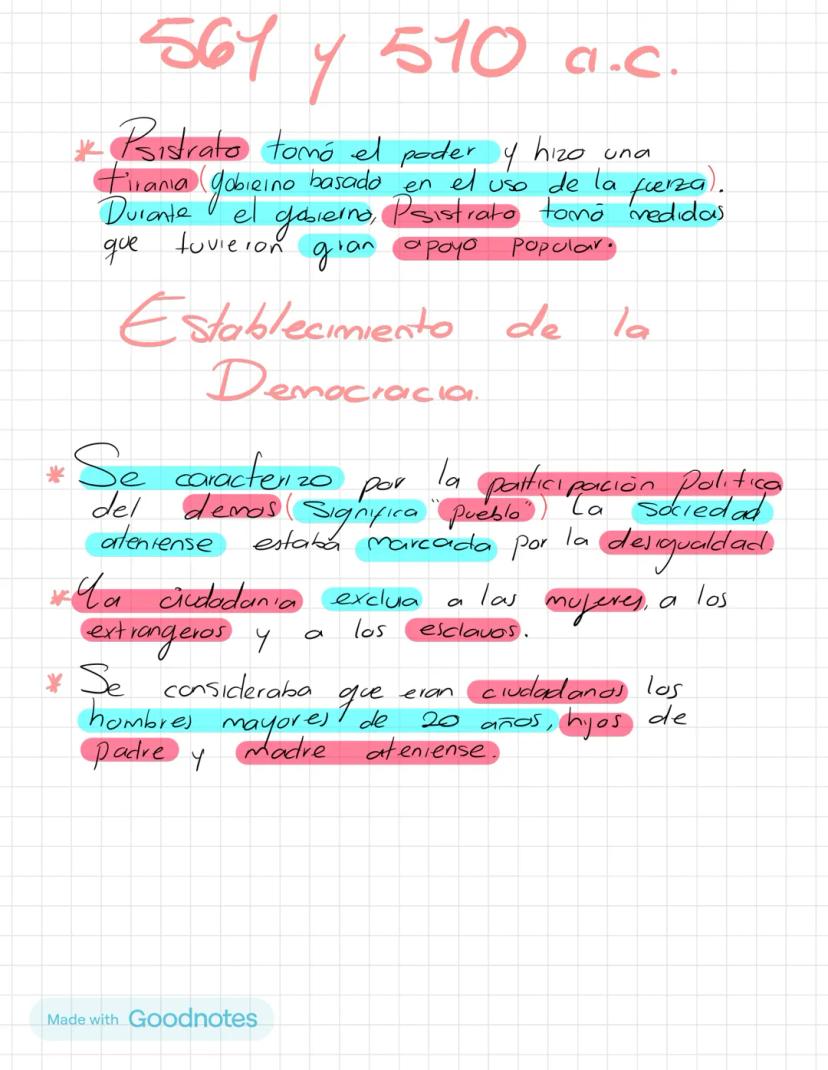 561 y 510 a.c.
* Psistrato tomó el poder y hizo una
tirania (gobierno basado en el uso de la fuerza).
Durante el gobierno, Psistrato tomó medidas
que tuvieron gran apoyo popular.
Establecimiento de la
Democracia.
* Se caracterizo por la participación politica
del demos (significa "pueblo") La sociedad
ateniense estaba marcada por la desigualdad.
* La ciudadania exclua a las mujeres, a los
extrangeros y a los esclavos.
* Se consideraba que eran ciudadanos los
hombres mayores de 20 años, hijos de
padre y madre ateniense.
Made with Goodnotes